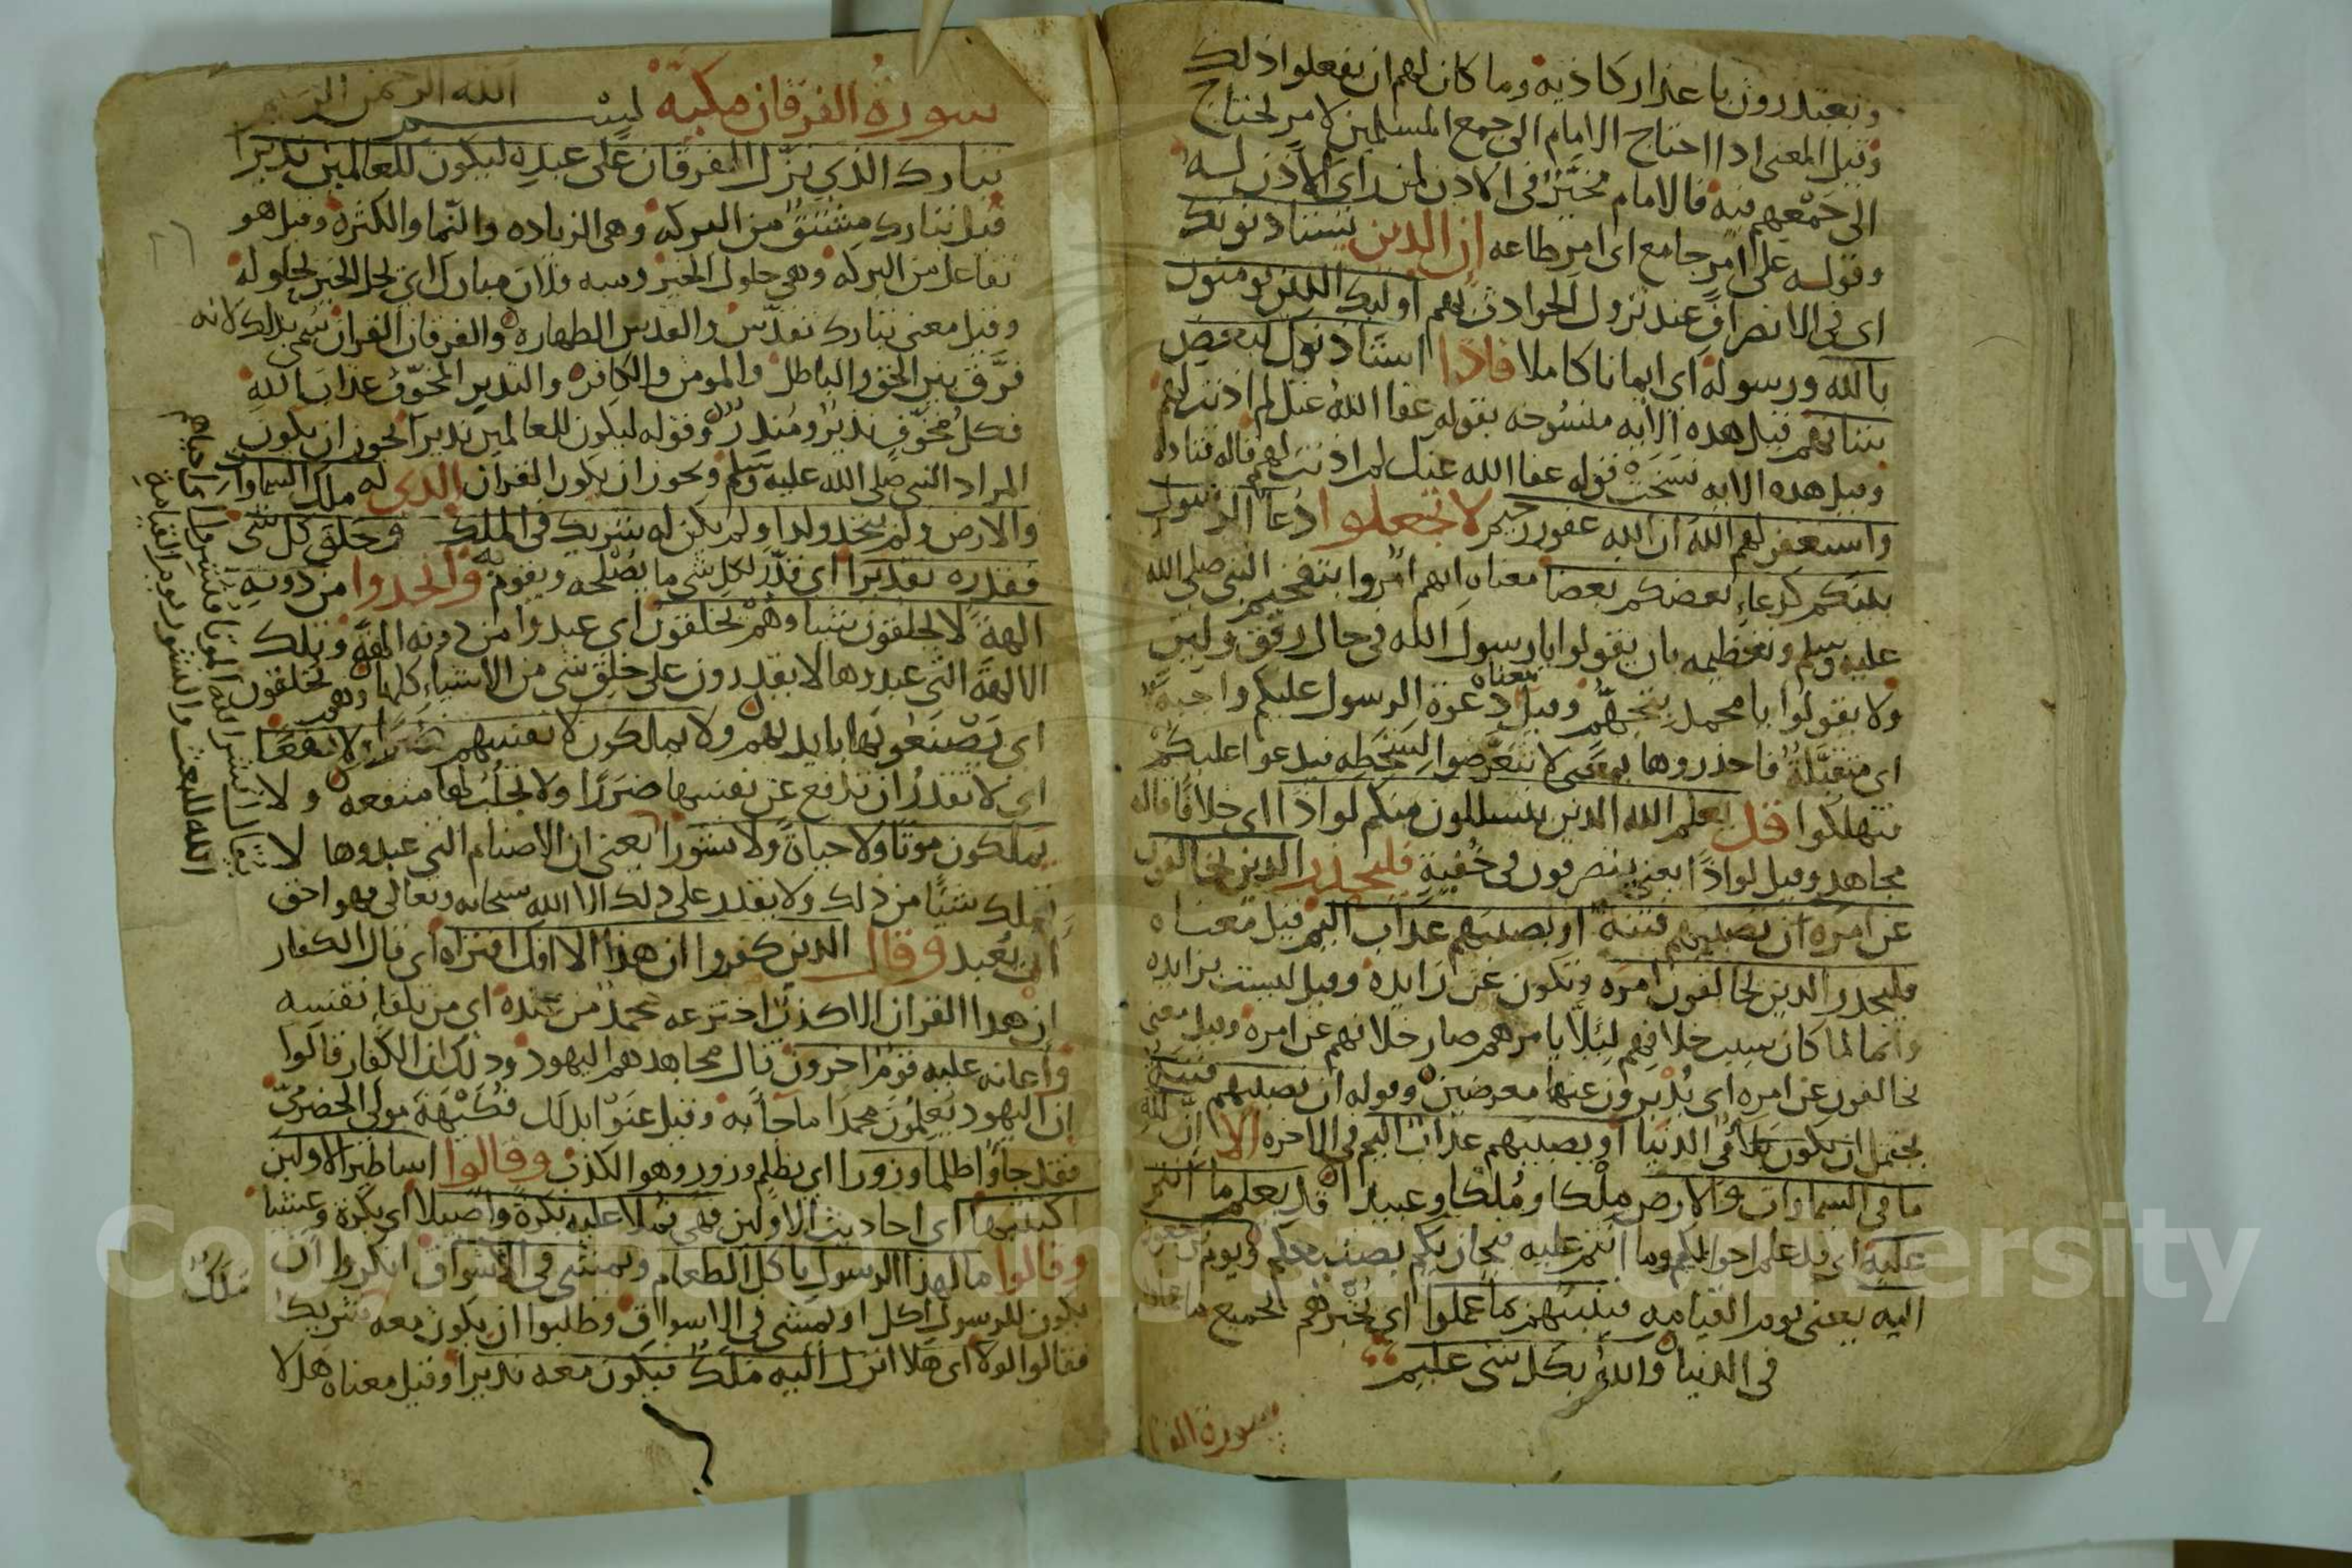 ويعتذرون باعذار كاذبه وما كان لهم ان يفعلوا ذلك
وقيل المعنى اذا احتاج الامام الى جمع المسلمين لامر يحتاج
الى جمعهم فيه فالامام مخير فى الاذن لمن راى الاذن له
وقوله على امر جامع اى امر طاعه ان الذين يستاذنونك
اى فى الانصراف عند نزول الحوادث بهم اوليك الذين يومنون
بالله ورسوله اى ايمانا كاملا فاذا استاذنوك لبعض
شانهم قيل هذه الايه منسوخه بقوله عفا الله عنك لم اذنت لهم
وقيل هذه الايه نسخت قوله عفا الله عنك لم اذنت لهم قاله قتاده
واستغفر لهم الله ان الله غفور رحيم لا تجعلوا دعا الرسول
بينكم كدعاء بعضكم بعضا معناه انهم امروا بتفخيم النبى صلى الله
عليه وسلم وتعظيمه بان يقولوا يا رسول الله فى حال رفق ولين
ولا يقولوا يا محمد بتجهم وقيل معناه دعوة الرسول عليكم واجبة
اى متقبلة فاحذروها بمعنى لا تتعرضوا لسخطه فيدعوا عليكم
فتهلكوا قد يعلم الله الذين يتسللون منكم لواذا اى خلافا قاله
مجاهد وقيل لواذا يعنى ينصرفون فى خفية فليحذر الذين يخالفون
عن امره ان تصيبهم فتنة او يصيبهم عذاب اليم قيل معناه
فليحذر الذين يخالفون امره وتكون عن زايدة وقيل ليست بزايده
وانما لما كان سبب خلافهم ليلا يامرهم صار خلافهم عن امره وقيل معنى
يخالفون عن امره اى يدبرون عنها معرضين وقوله ان تصيبهم فتنة
يحتمل ان يكون بلا فى الدنيا او يصيبهم عذاب اليم فى الاخره الا ان لله
ما فى السماوات والارض ملكا وملكا وعبيدا قد يعلم ما انتم
عليه اى قد علم احوالكم وما انتم عليه فيجازيكم بصنيعكم ويوم يرجعون
اليه يعنى يوم القيامه فينبئهم بما عملوا اى يخبرهم بجميع ما
فى الدنيا والله بكل شى عليم
سورة الفرقان
سورة الفرقان مكية بسم الله الرحمن الرحيم
تبارك الذى نزل الفرقان على عبده ليكون للعالمين نذيرا
قيل تبارك مشتق من البركه وهى الزياده والنما والكثرة وقيل هو
تفاعل من البركه وهى حلول الخير ومنه فلان مبارك اى يحل الخير بحلوله
وقيل معنى تبارك تقدس والقدس الطهاره والفرقان القران سمى بذلك لانه
فرق بين الحق والباطل والمومن والكافر والنذير المخوف عذاب الله
فكل مخوف نذير ومنذر وقوله ليكون للعالمين نذيرا يجوز ان يكون
المراد النبى صلى الله عليه وسلم ويجوز ان يكون القران الذى له ملك السماوات
والارض ولم يتخذ ولدا ولم يكن له شريك فى الملك وخلق كل شى
فقدره تقديرا اى قدر لكل شى ما يصلحه ويقوم به واتخذوا من دونه
الهة لا يخلقون شيا وهم يخلقون اى عبدوا من دونه الهة وتلك
الالهة التى عبدوها لا يقدرون على خلق شى من الاشياء كلها وهم يخلقون
اى يصنعونها بايديهم ولا يملكون لانفسهم ضرا ولا نفعا
اى لا تقدر ان تدفع عن نفسها ضررا ولا تجلب لها منفعه ولا
يملكون موتا ولا حياة ولا نشورا يعنى ان الاصنام التى عبدوها لا
تملك شيا من ذلك ولا يقدر على ذلك الا الله سبحانه وتعالى فهو احق
ان يعبد وقال الذين كفروا ان هذا الا افك افتراه اى قال الكفار
ان هذا القران الا كذب اخترعه محمد من عنده اى من تلقا نفسه
واعانه عليه قوم اخرون قال مجاهد هم اليهود وذلك ان الكفار قالوا
ان اليهود يعلمون محمدا ما جا به وقيل عنوا بذلك فكيهة مولى الحضرمى
فقد جاوا ظلما وزورا اى بظلم وزور وهو الكذب وقالوا اساطير الاولين
اكتتبها اى احاديث الاولين فهى تملا عليه بكرة واصيلا اى بكرة وعشيا
وقالوا ما لهذا الرسول ياكل الطعام ويمشى فى الاسواق انكروا ان
يكون للرسول اكل او يمشى فى الاسواق وطلبوا ان يكون معه شريكا
ملك
فقالوا لولا اى هلا انزل اليه ملك فيكون معه نذيرا وقيل معناه هلا
الله للبعث والنشور يوم القيامة
Copyright © King Saud University